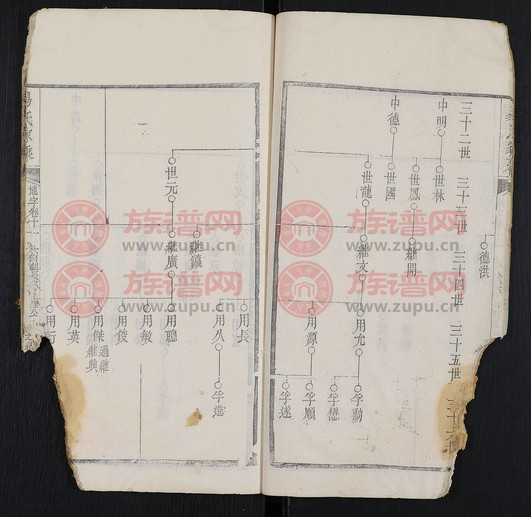 三十二世
三十三世
三十四世
三十五世
中明
世林
德洪
中德
世鳳
繼開
世國
世龍
繼文
用允
孚勳
孚懋
用譚
孚順
孚述
用長
繼瀛
用久
孚進
世元
繼廣
用聽
用敏
用俊
用傑
過繼
繼興
用英
地字卷十一
族谱网
www.zupu.cn
族谱网
www.zupu.cn
族谱网
www.zupu.cn
族谱网
www.zupu.cn